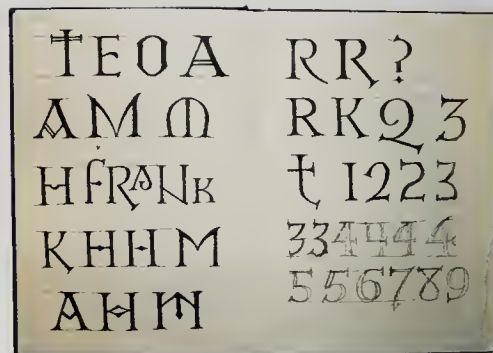 TEOA
AMM
HFRANK
KHHM
AHM
RR?
RKQ3
t1223
334444
556789